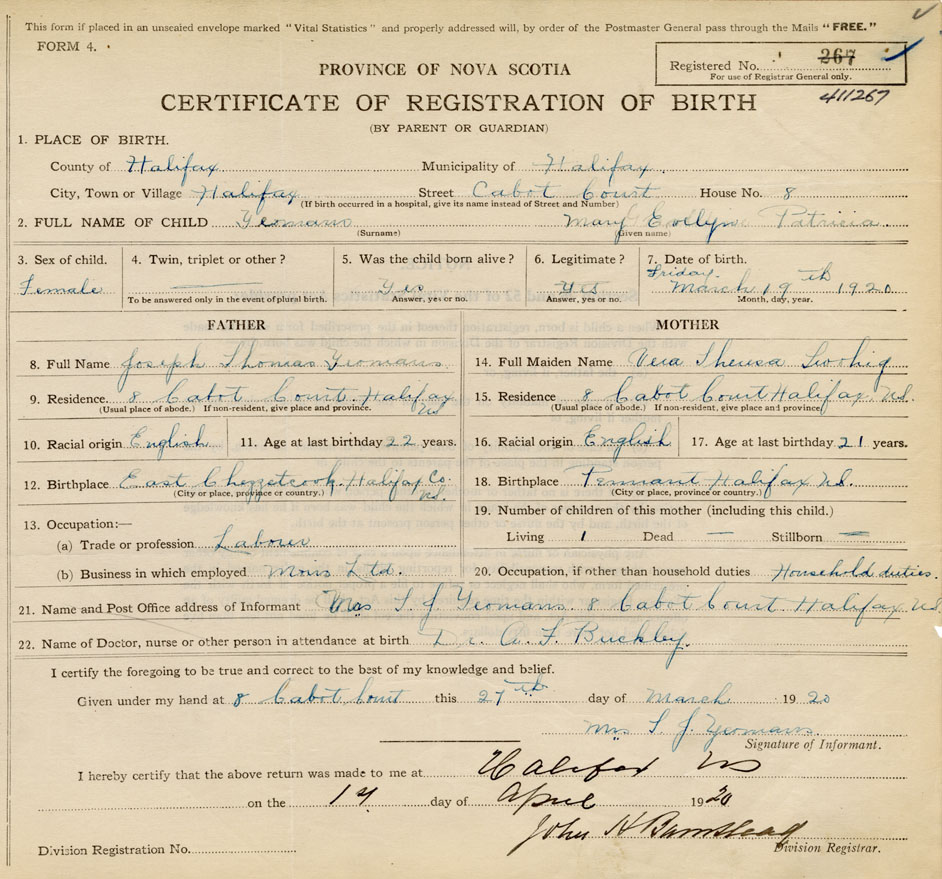 This form if placed in an unsealed envelope marked "Vital Statistics" and properly addressed will, by order of the Postmaster General pass through the Mails "FREE."
FORM 4.
Registered No. 267
For use of Registrar General only.
411267
PROVINCE OF NOVA SCOTIA
CERTIFICATE OF REGISTRATION OF BIRTH
(BY PARENT OR GUARDIAN)
1. PLACE OF BIRTH.
County of Halifax Municipality of Halifax
City, Town or Village Halifax Street Cabot Court House No. 8
(If birth occurred in a hospital, give its name instead of Street and Number)
2. FULL NAME OF CHILD Yeomans Mary Evellyne Patricia
(Surname) (Given name)
3. Sex of child. 4. Twin, triplet or other ? 5. Was the child born alive ? 6. Legitimate ? 7. Date of birth.
Friday
Female Yes Yes March 19th 1920
To be answered only in the event of plural birth. Answer, yes or no. Answer, yes or no. Month, day, year.
FATHER MOTHER
8. Full Name Joseph Thomas Yeomans 14. Full Maiden Name Vera Theresa
9. Residence. 8 Cabot Court Halifax NS 15. Residence 8 Cabot Court Halifax NS.
(Usual place of abode.) If non-resident, give place and province. (Usual place of abode.) If non-resident, give place and province
10. Racial origin English 11. Age at last birthday 22 years. 16. Racial origin English 17. Age at last birthday 21 years.
12. Birthplace East Chezzetcook Halifax Co. NS. 18. Birthplace Tennant Halifax NS.
(City or place, province or country.) (City or place, province or country.)
13. Occupation:— 19. Number of children of this mother (including this child.)
(a) Trade or profession Labour Living 1 Dead — Stillborn —
(b) Business in which employed Moirs Ltd. 20. Occupation, if other than household duties Household duties.
21. Name and Post Office address of Informant Mrs T. J. Yeomans 8 Cabot Court Halifax NS
22. Name of Doctor, nurse or other person in attendance at birth Dr. A. F. Buckley.
I certify the foregoing to be true and correct to the best of my knowledge and belief.
Given under my hand at 8 Cabot Court this 27th day of March 1920
Mrs T. J. Yeomans
Signature of Informant.
I hereby certify that the above return was made to me at Halifax NS
on the day of April 1920
John H Barnstead
Division Registration No. Division Registrar.